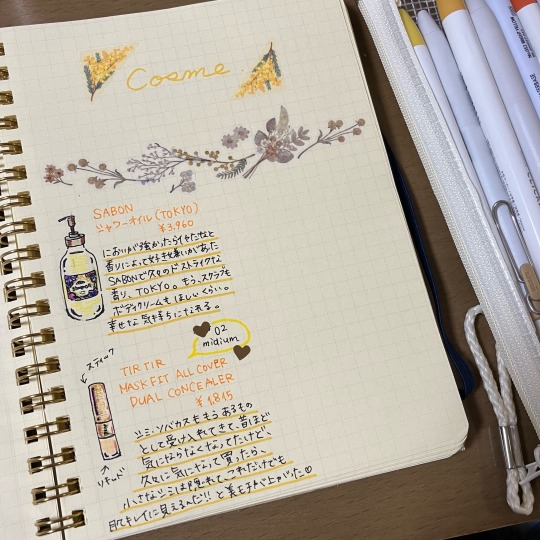 Cosme
SABON
シャワーオイル(TOKYO)
¥3,960
においが強かったらイヤだなと
香りによって好き嫌いがあった
SABONで久々のドストライクな
香り、TOKYO。もう、スクラブも
ボディクリームもほしいくらい。
幸せな気持ちになれる。
02
midium
スティック
TIRTIR
MASK FIT ALL COVER
DUAL CONCEALER
¥1,815
リキッド
シミ・ソバカスももうあるもの
として受け入れてきて、昔ほど
気にならなくなってたけど、
久々に気になって買ったら、
小さなシミは隠れて、これだけでも
目てキレイに見えるんだ!! と美モチが上がった♡